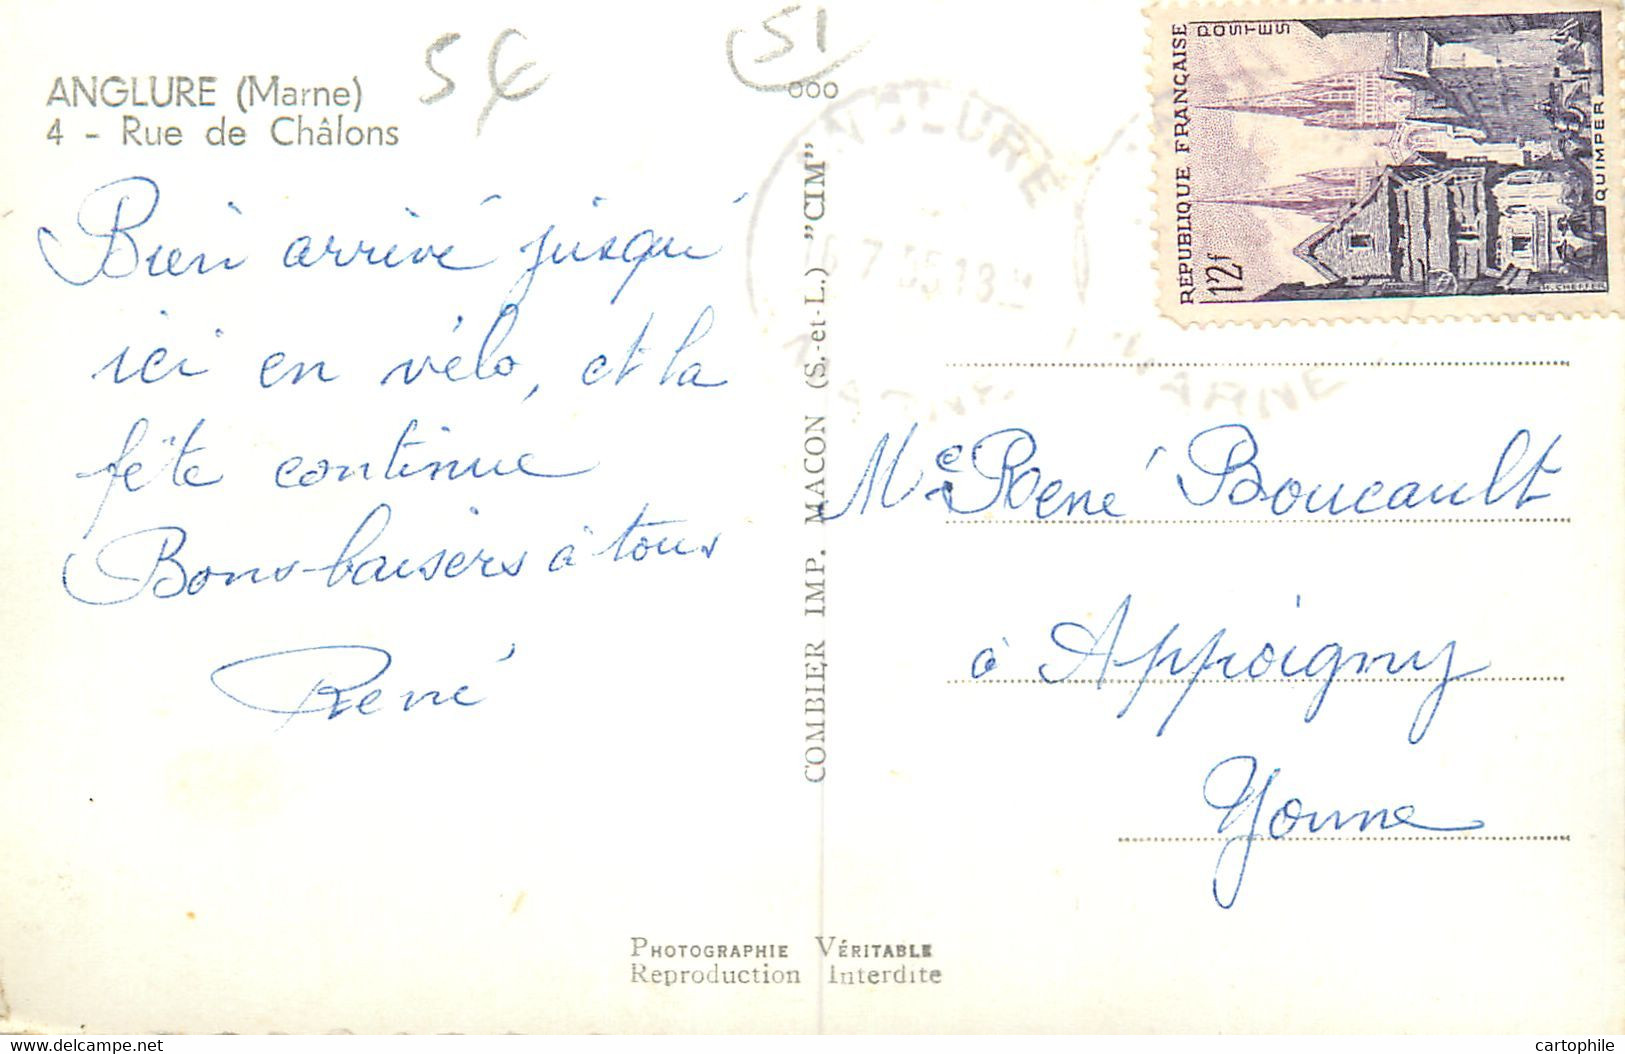 ANGLURE (Marne)
4 - Rue de Châlons
5€
51
000
Bien arrivé jusqu'
ici en vélo, et la
fête continue
Bons baisers à tous
René
COMBIER IMP. MACON (S.-et-L.) "CIM"
ANGLURE
MARNE
RÉPUBLIQUE FRANÇAISE
POSTES
12f
QUIMPER
Me René Boucault
à Appoigny
Yonne
PHOTOGRAPHIE VÉRITABLE
Reproduction Interdite
www.delcampe.net
cartophile